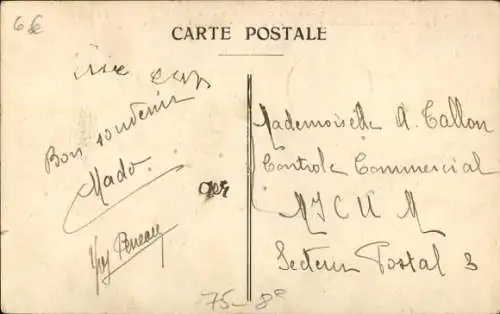 6€
CARTE POSTALE
Bon souvenir
Mado.
Mademoiselle A. Tallon
Controle Commercial
M I C U M
Secteur Postal 3
75-8e